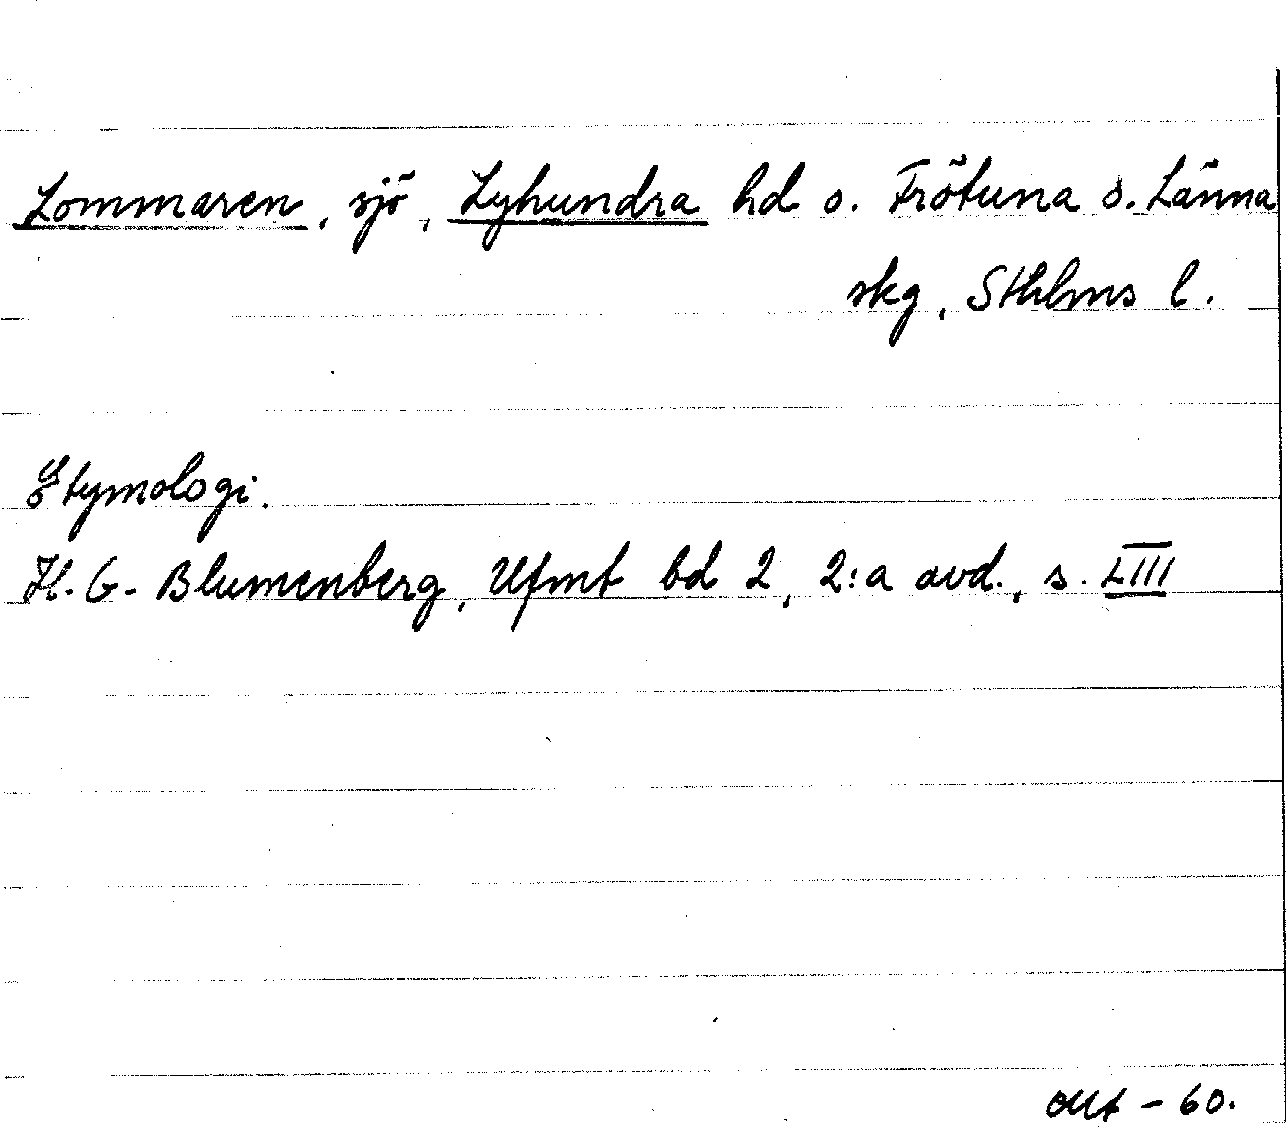 Lommaren, sjö, Lyhundra hd o. Frötuna o. Länna
skg, Sthlms l.
Etymologi.
H. G. Blumenberg, Ufmt bd 2, 2:a avd., s. LIII
okt - 60.